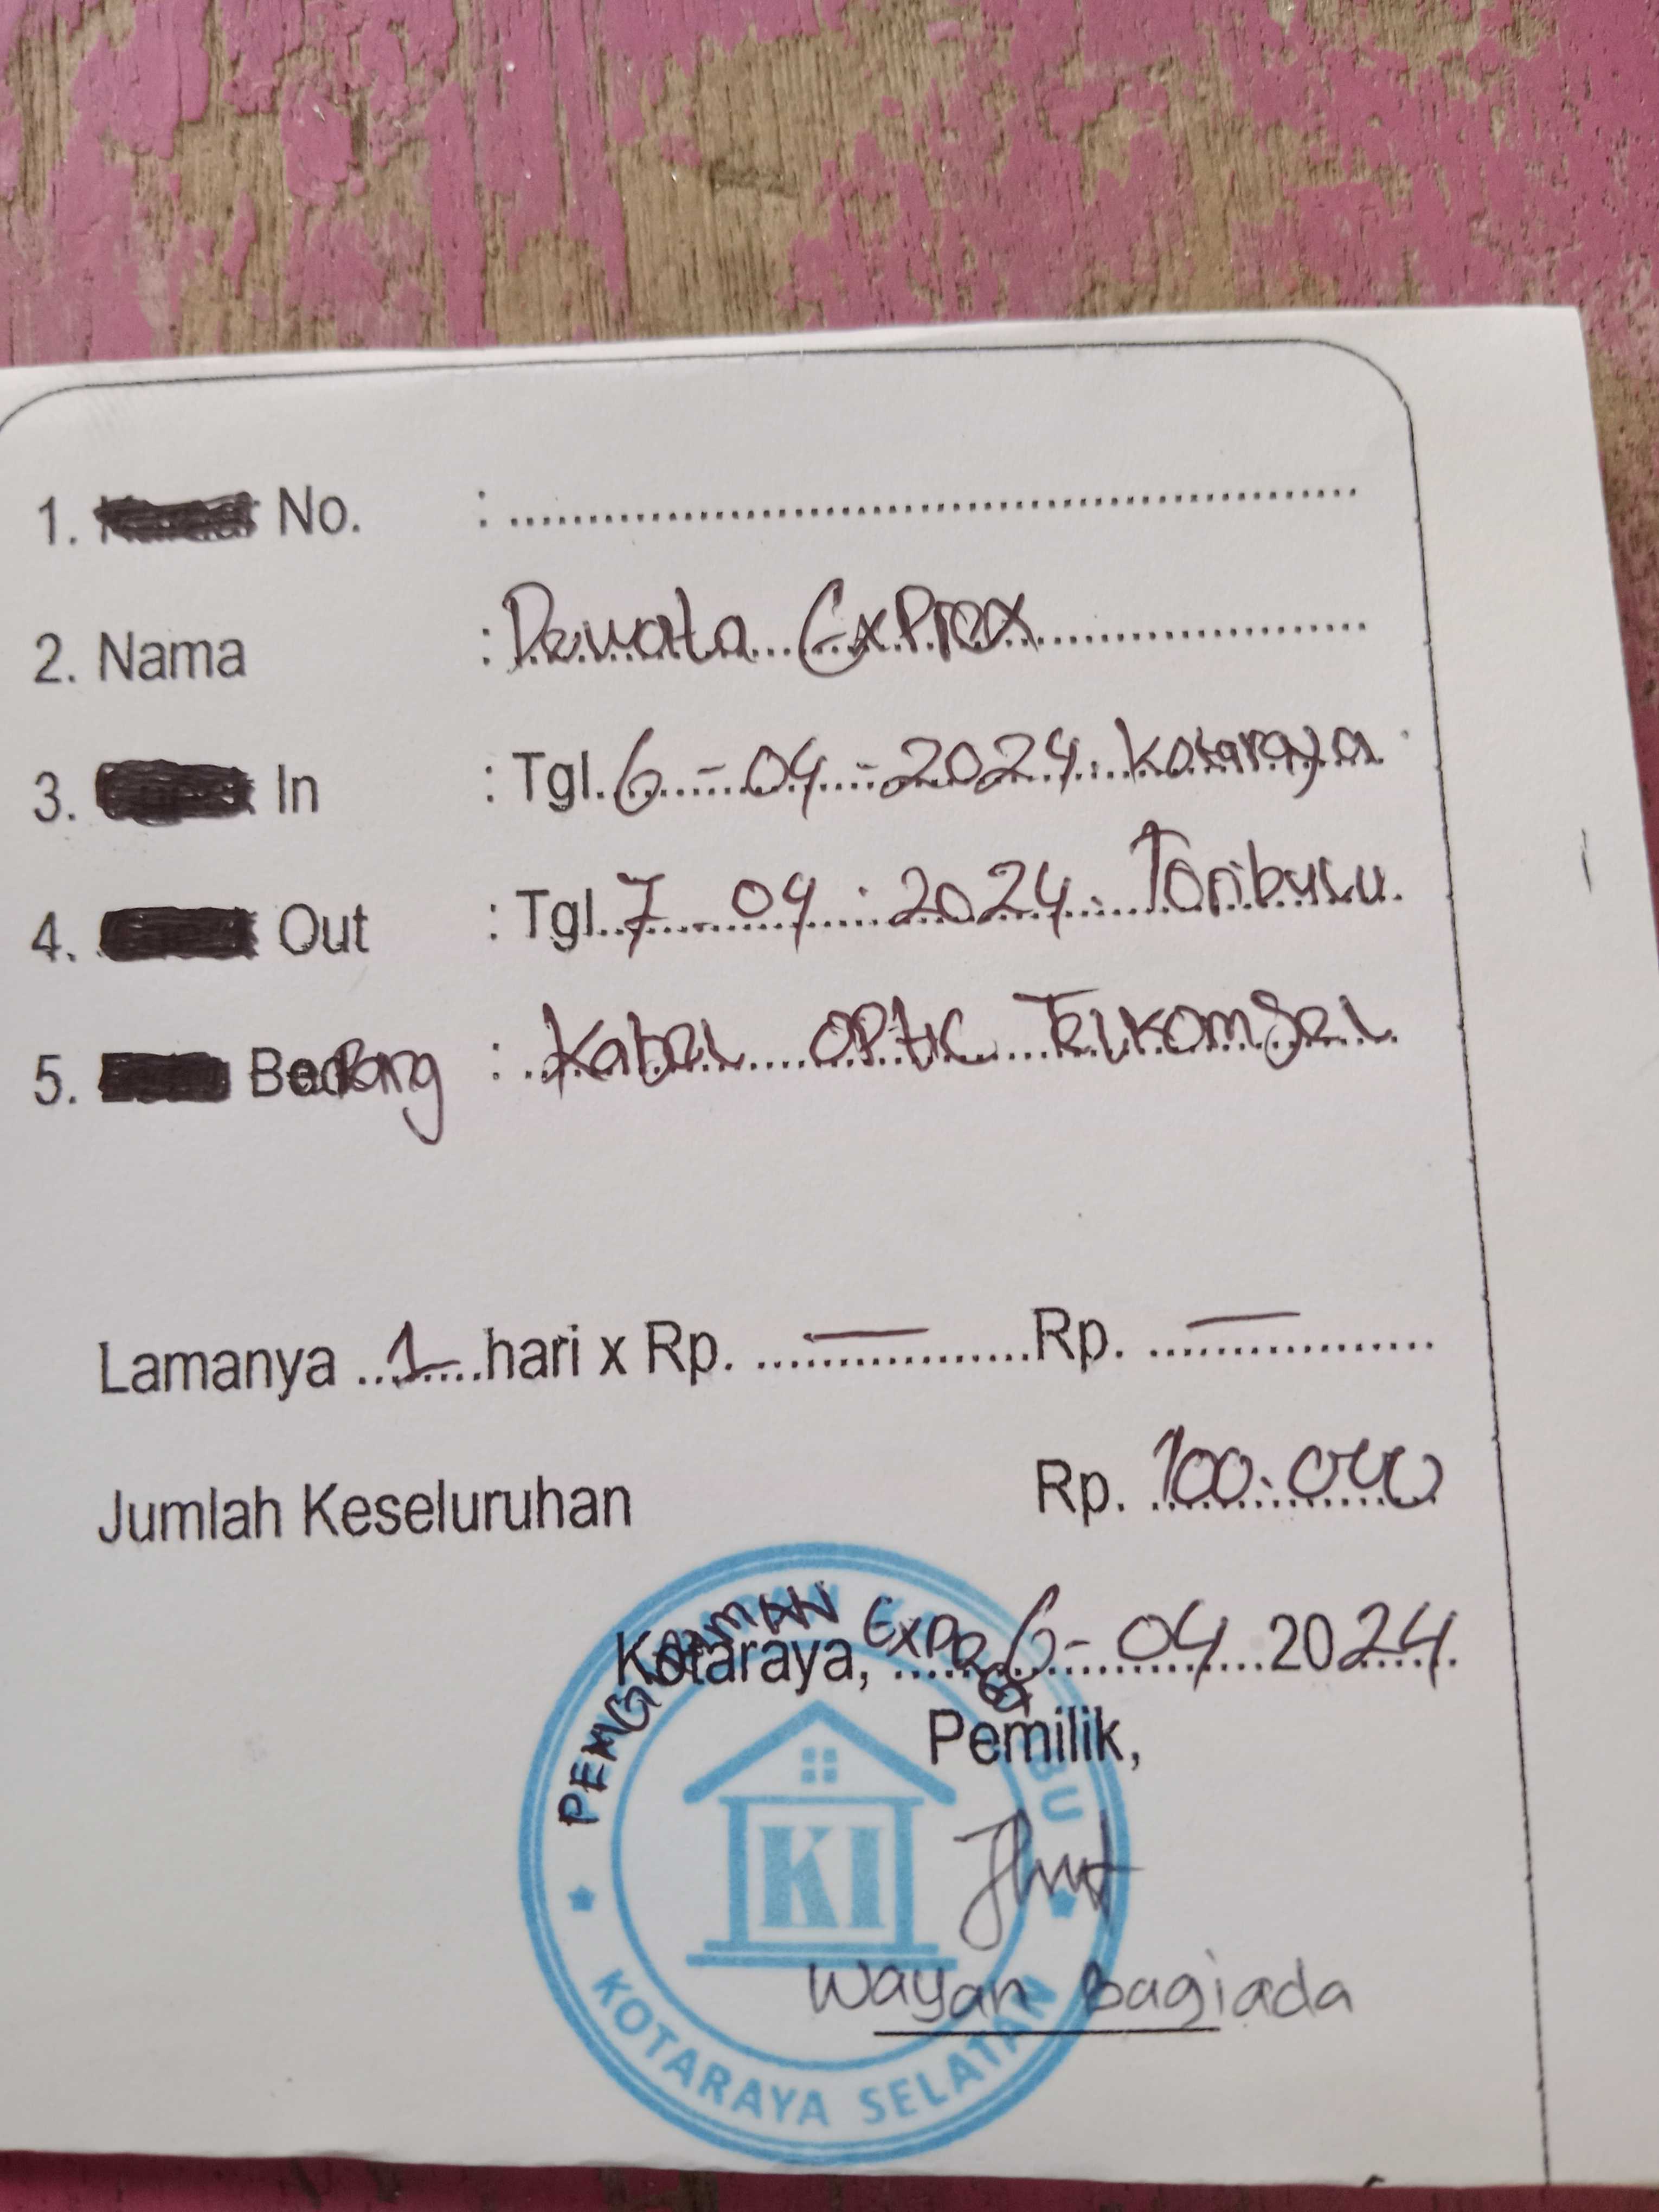 1. No. :
2. Nama : Dewata Exprex
3. In : Tgl. 6 - 04 - 2024. Kotaraya
4. Out : Tgl. 7 - 04 - 2024. Toribulu.
5. Barang : Kabel OPtic Telkomsel
Lamanya 1 hari x Rp. — Rp. —
Jumlah Keseluruhan Rp. 100.000
PENGIRIMAN EXPRES
Kotaraya, 6 - 04 2024.
Pemilik,
BU
KI
Wayan Bagiada
KOTARAYA SELATAN